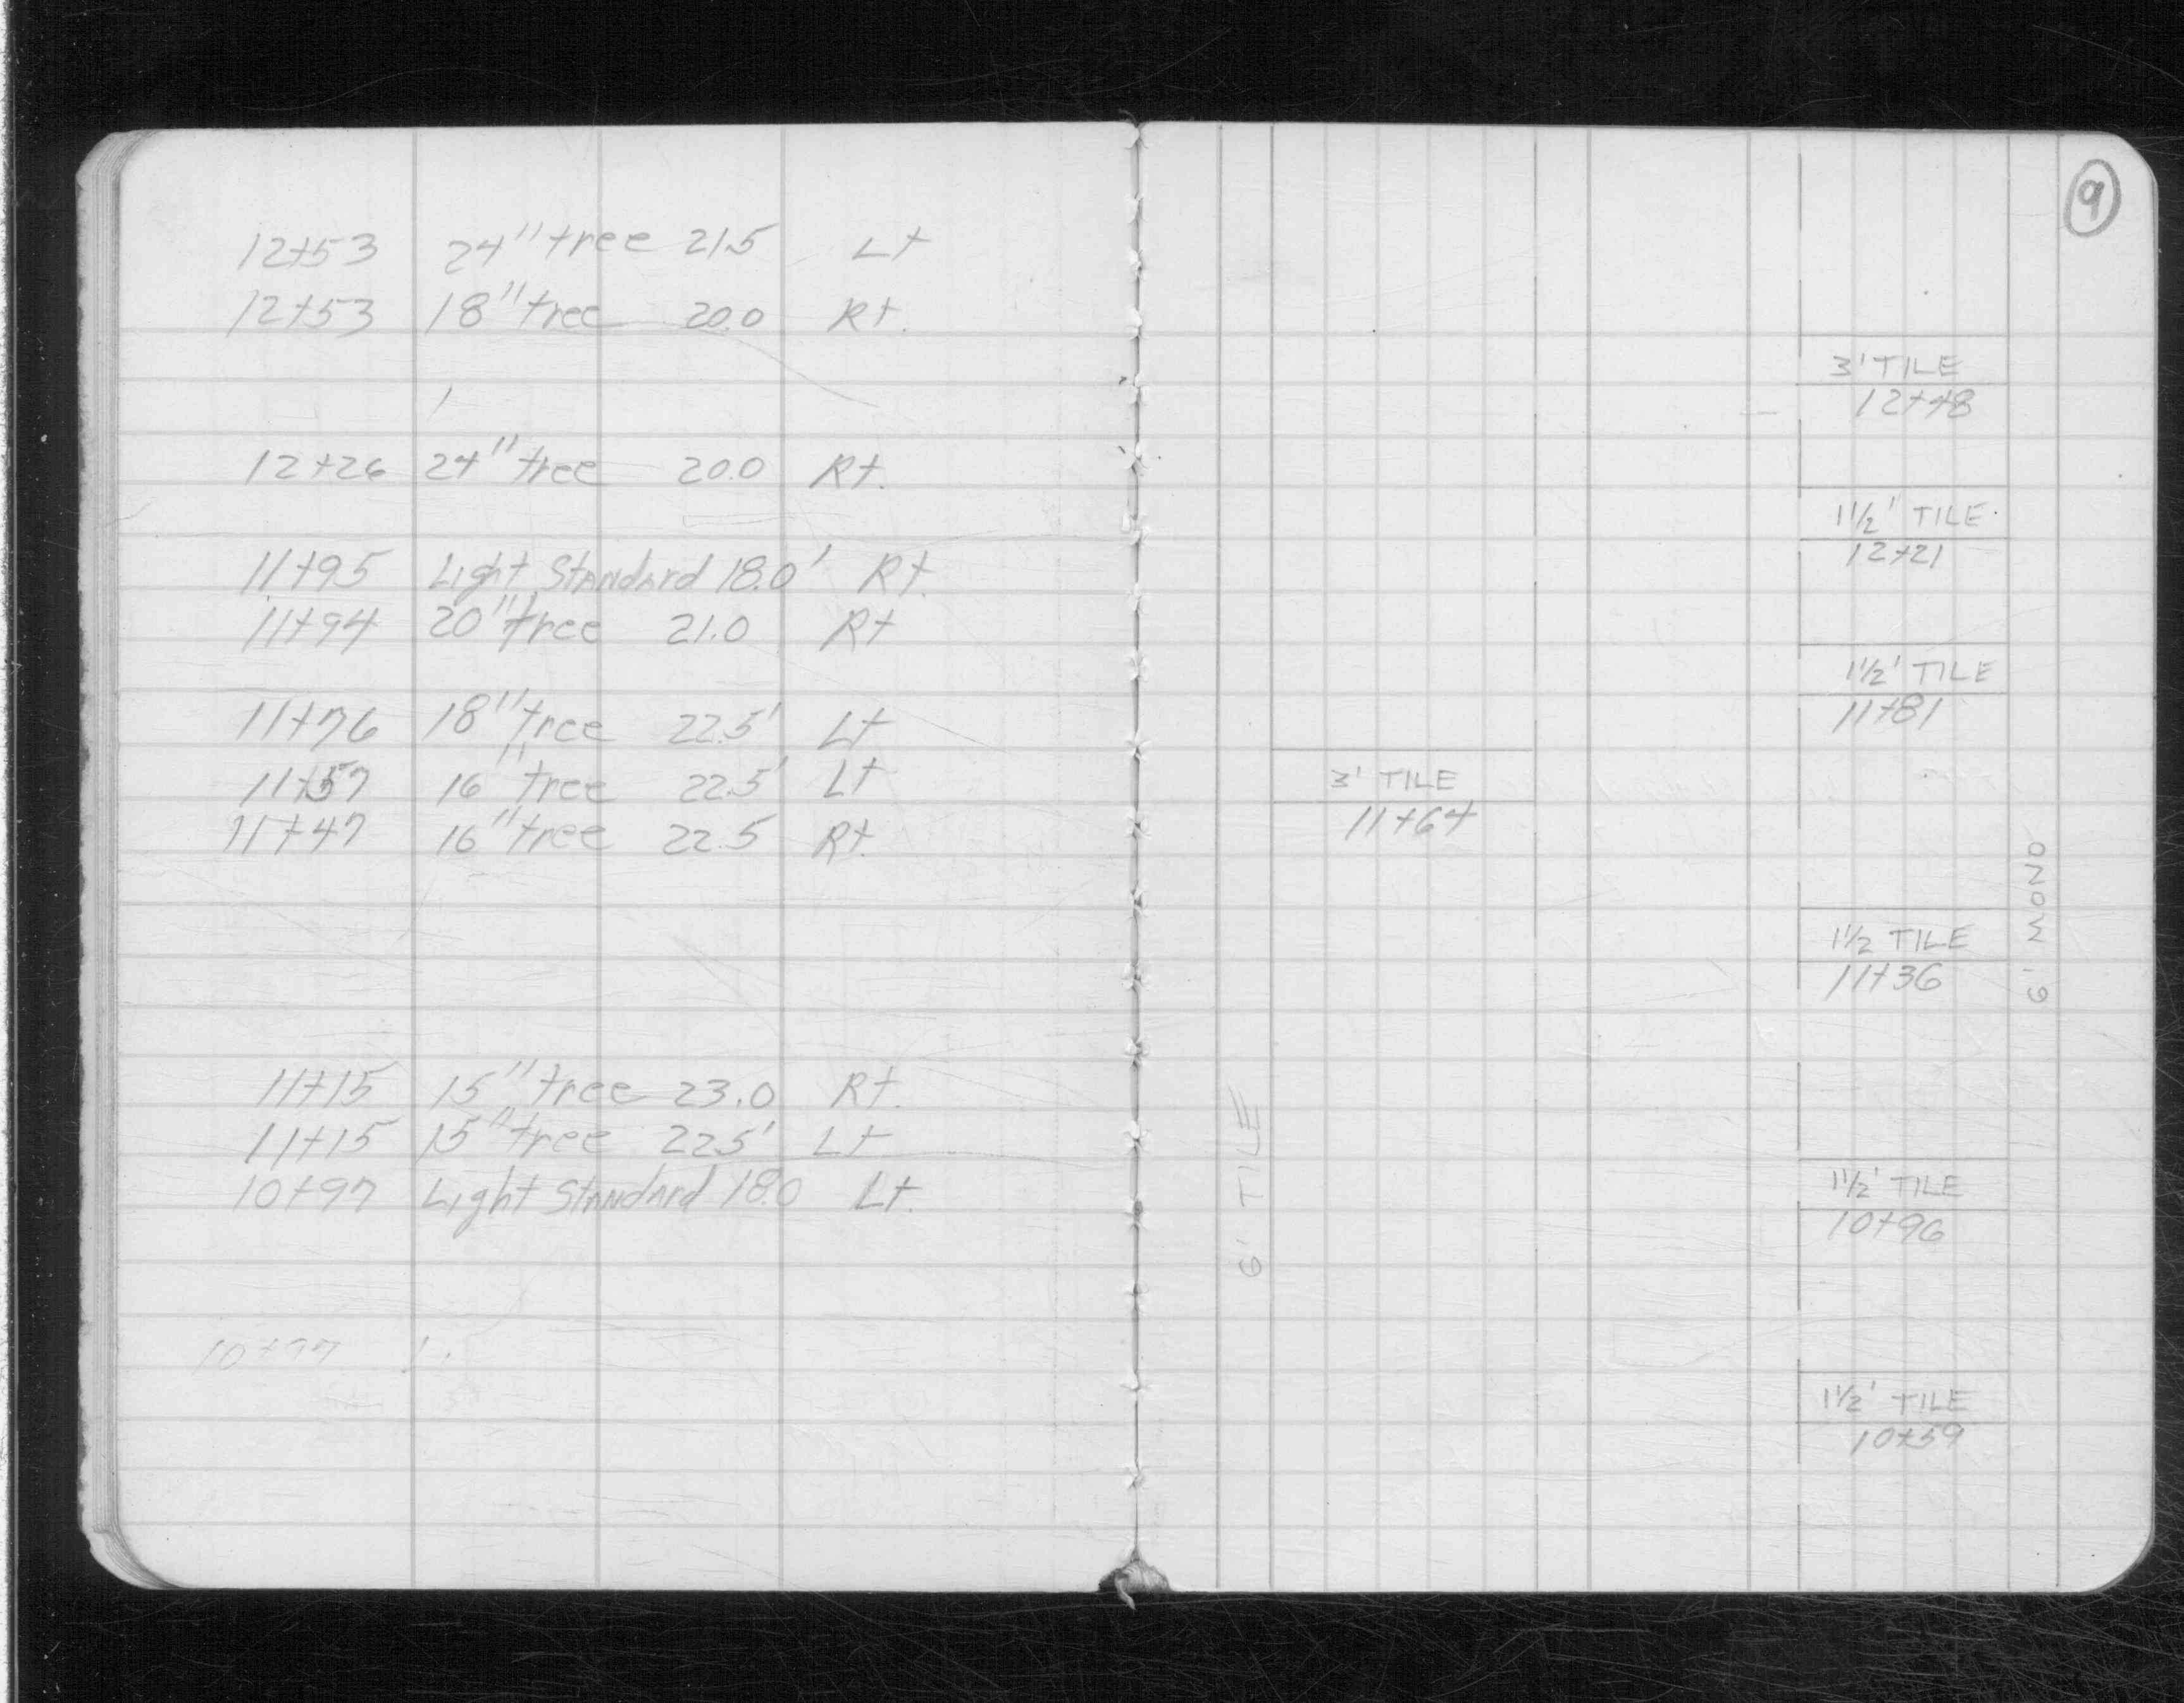 12+53 24" tree 21.5 Lt
12+53 18" tree 20.0 Rt.
12+26 24" tree 20.0 Rt.
11+95 Light Standard 18.0' Rt.
11+94 20" tree 21.0 Rt
11+76 18" tree 22.5' Lt
11+57 16" tree 22.5' Lt
11+47 16" tree 22.5 Rt.
11+15 15" tree 23.0 Rt.
11+15 15" tree 22.5' Lt
10+97 Light Standard 18.0 Lt.
9
3' TILE
12+48
1 1/2' TILE
12+21
1 1/2' TILE
11+81
3' TILE
11+64
1 1/2 TILE
11+36
6' MONO
6' TILE
1 1/2' TILE
10+96
1 1/2' TILE
10+59